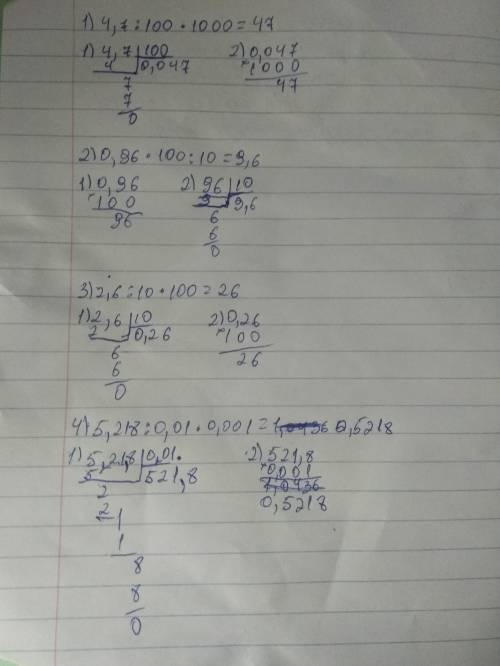 1) 4,7 : 100 · 1000 = 47
1) 4,7 | 100 2) 0,047
4 0,047 × 1000
7 47
7
0
2) 0,96 · 100 : 10 = 9,6
1) 0,96 2) 96 | 10
× 100 9 9,6
96 6
6
0
3) 2,6 : 10 · 100 = 26
1) 2,6 | 10 2) 0,26
2 0,26 × 100
6 26
6
0
4) 5,218 : 0,01 · 0,001 = 0,5218
1) 5,218 | 0,01 2) 521,8
5 521,8 × 0,001
2 0,5218
2
1
1
8
8
0